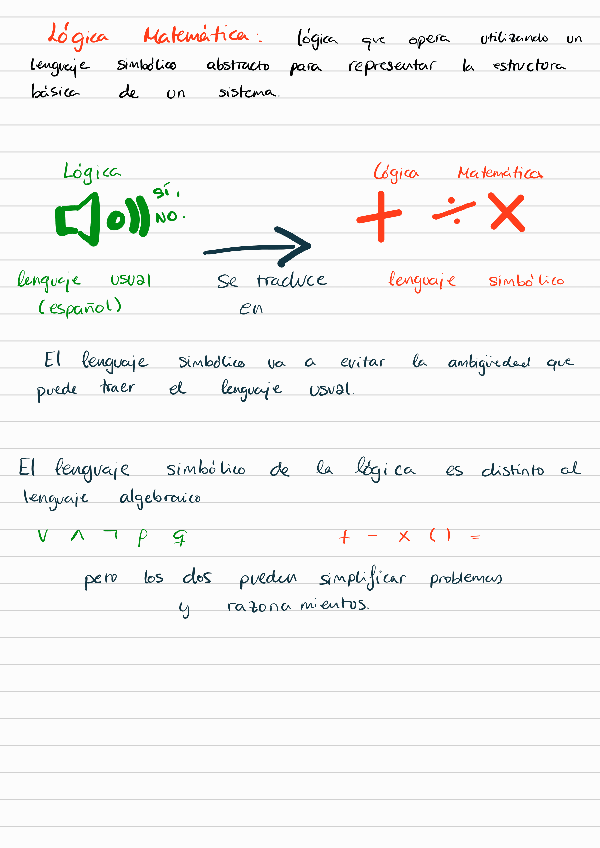 Lógica Matemática: lógica que opera utilizando un
lenguaje simbólico abstracto para representar la estructura
básica de un sistema.
Lógica
Lógica Matemática
SÍ,
NO.
+ ÷ ×
lenguaje usual
(español)
Se traduce
en
lenguaje simbólico
El lenguaje simbólico va a evitar la ambigüedad que
puede traer el lenguaje usual.
El lenguaje simbólico de la lógica es distinto al
lenguaje algebraico
∨ ∧ ¬ p q
+ - x ( ) =
pero los dos pueden simplificar problemas
y razonamientos.